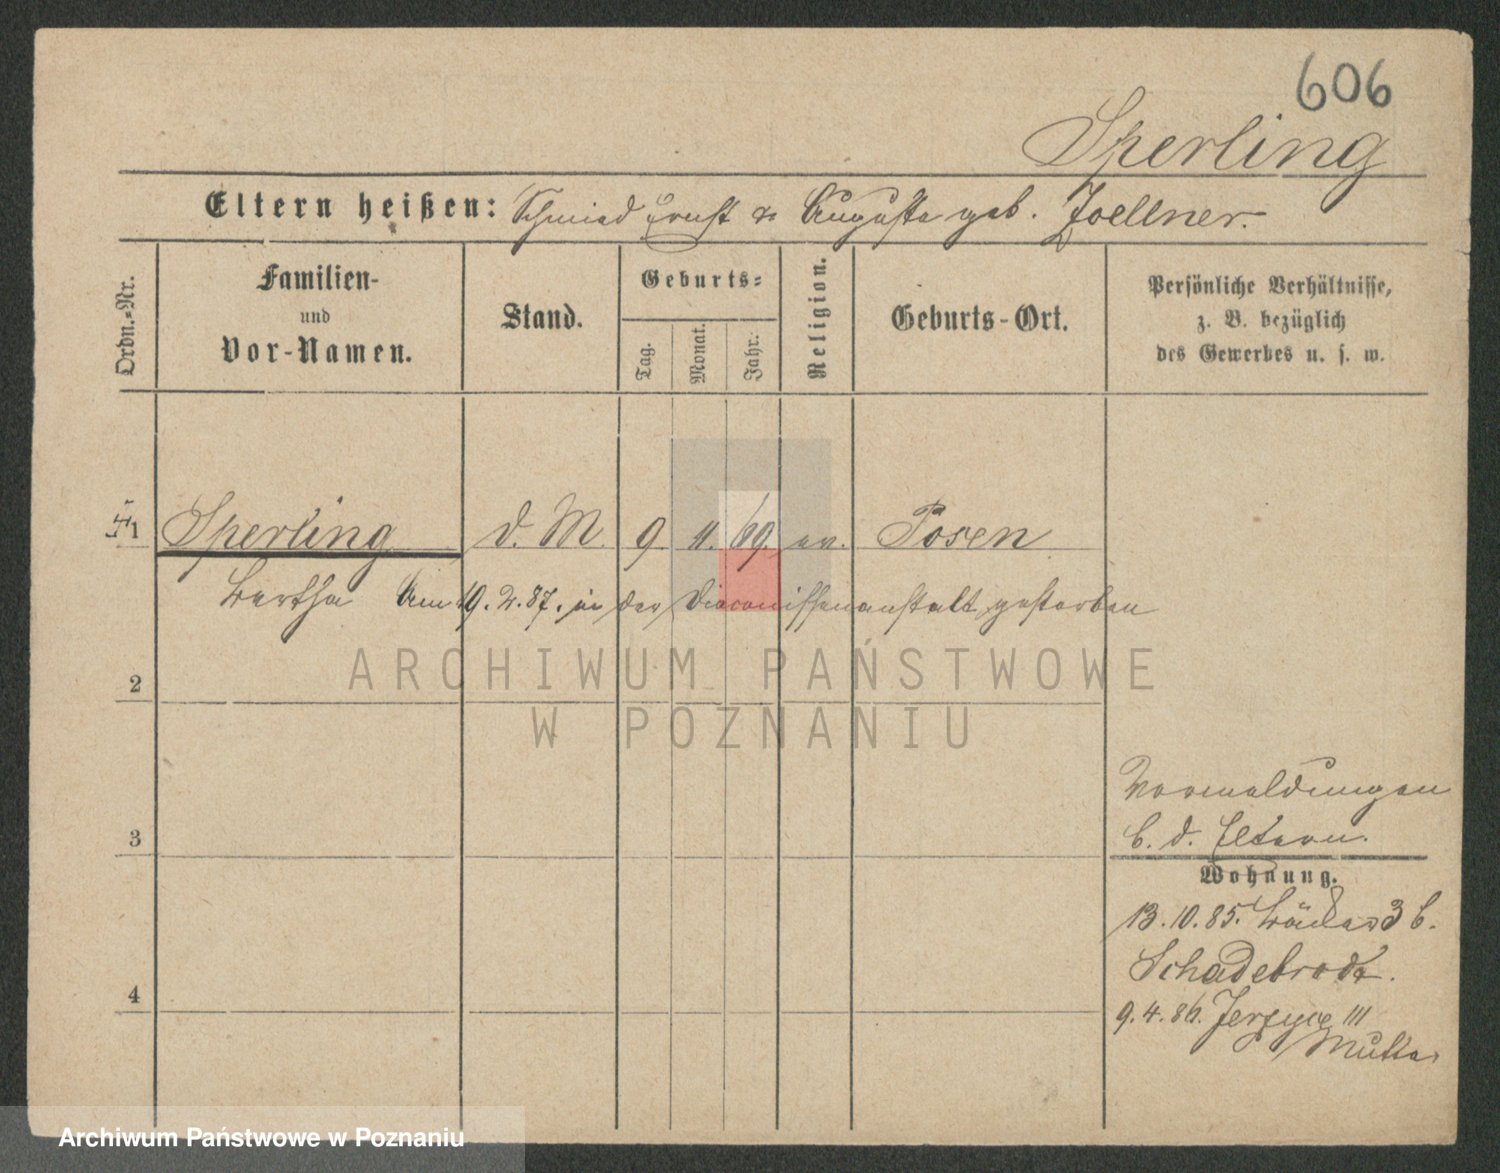 606
Sperling
Eltern heißen: Schmied Ernst & Auguste geb. Zoellner.
Ordn.-Nr.
Familien-
und
Vor-Namen.
Stand.
Geburts-
Tag.
Monat.
Jahr.
Religion.
Geburts-Ort.
Persönliche Verhältnisse,
z. B. bezüglich
des Gewerbes u. s. w.
1 Sperling d. M. 9. 11. 69. ev. Posen
Bertha Am 19. 2. 87. in der Diaconissenanstalt gestorben
ARCHIWUM PAŃSTWOWE
W POZNANIU
2
3
4
Vormeldungen
b. d. Eltern.
Wohnung.
13. 10. 85. 3 b.
Schadebrodt.
9. 4. 86. Jerzyce III
Mutter
Archiwum Państwowe w Poznaniu